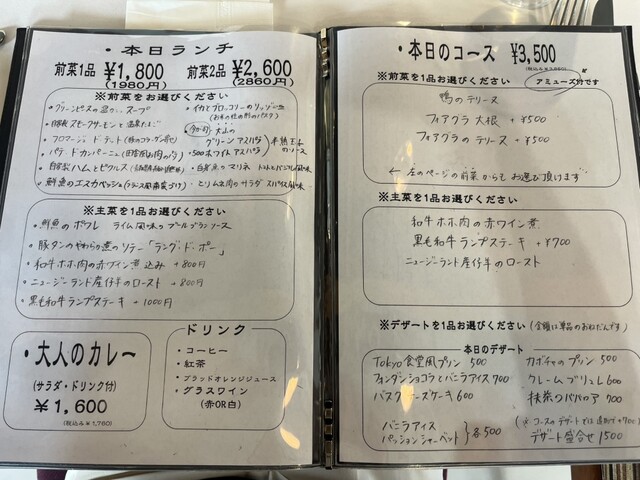 ・本日ランチ
前菜1品 ¥1,800 前菜2品 ¥2,600
(1980円) (2860円)
※前菜をお選びください
・グリーンピースの温かいスープ
・自家製スモークサーモンと温泉たまご
・フロマージュ ド テット
・パテ ドカンパーニュ
・自家製ハムとピクルス
・鮮魚のエスカベッシュ
・イカとブロッコリーのリゾーニ
(お米の形のパスタ)
・大山の
グリーンアスパラ
+500ホワイトアスパラ
半熟玉子のソース
・とりムネ肉のサラダ スパイス風味
※主菜を1品お選びください
・鮮魚のポワレ ライム風味のブールブランソース
・豚タンのやわらか煮のソテー「ラング・ド・ポー」
・和牛ホホ肉の赤ワイン煮込み +800円
・ニュージーランド産仔羊のロースト +800円
・黒毛和牛ランプステーキ +1000円
・大人のカレー
(サラダ・ドリンク付)
¥1,600
(税込み¥1,760)
ドリンク
・コーヒー
・紅茶
・ブラッドオレンジジュース
・グラスワイン
(赤OR白)
・本日のコース ¥3,500
※前菜を1品お選びください アミューズ付です
鴨のテリーヌ
フォアグラ大根 +¥500
フォアグラのテリーヌ +¥500
← 左のページの前菜からもお選び頂けます
※主菜を1品お選びください
和牛ホホ肉の赤ワイン煮
黒毛和牛ランプステーキ +¥700
ニュージーランド産仔羊のロースト
※デザートを1品お選びください (金額は単品のおねだんです)
本日のデザート
Tokyo食堂風プリン 500
フォンダンショコラとバニラアイス 700
バスクチーズケーキ 600
バニラアイス
パッションシャーベット } 各500
カボチャのプリン 500
クレームブリュレ 600
抹茶のババロア 700
デザート盛合せ 1500